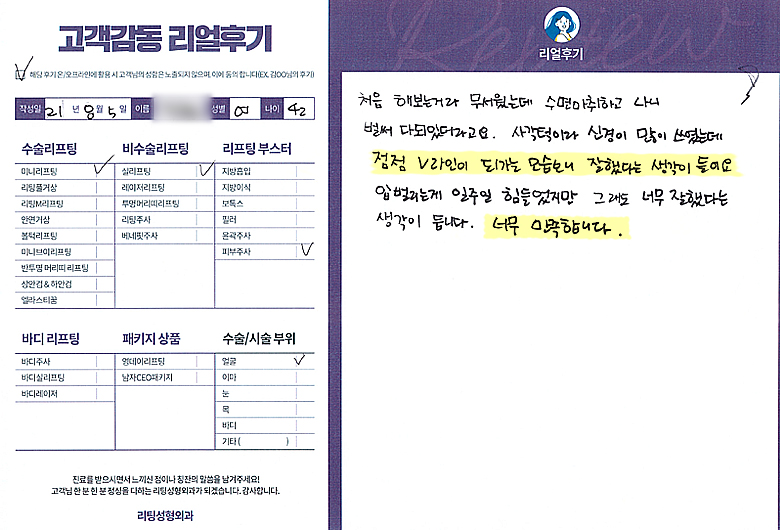 고객감동 리얼후기
해당 후기 온/오프라인에 활용 시 고객님의 성함은 노출되지 않으며, 이에 동의 합니다(EX. 김OO님의 후기)
작성일 21 년 8월 5 일 이름 성별 여 나이 42
수술리프팅
미니리프팅
리팅풀거상
리팅M리프팅
안면거상
볼턱리프팅
미니브이리프팅
반투명 머리띠 리프팅
상안검 & 하안검
엘라스티꿈
비수술리프팅
실리프팅
레이저리프팅
투명머리띠리프팅
리팅주사
베네핏주사
리프팅 부스터
지방흡입
지방이식
보톡스
필러
윤곽주사
피부주사
바디 리프팅
바디주사
바디실리프팅
바디레이저
패키지 상품
영데이리프팅
남자CEO패키지
수술/시술 부위
얼굴
이마
눈
목
바디
기타 ( )
진료를 받으시면서 느끼신 점이나 칭찬의 말씀을 남겨주세요!
고객님 한 분 한 분 정성을 다하는 리팅성형외과가 되겠습니다. 감사합니다.
리팅성형외과
Review
리얼후기
처음 해보는거라 무서웠는데 수면마취하고 나니
벌써 다되있더라고요. 사각턱이라 신경이 많이 쓰였는데
점점 V라인이 되가는 모습보니 잘했다는 생각이 들어요
입벌리는게 일주일 힘들었지만 그래도 너무 잘했다는
생각이 듭니다. 너무 만족합니다.